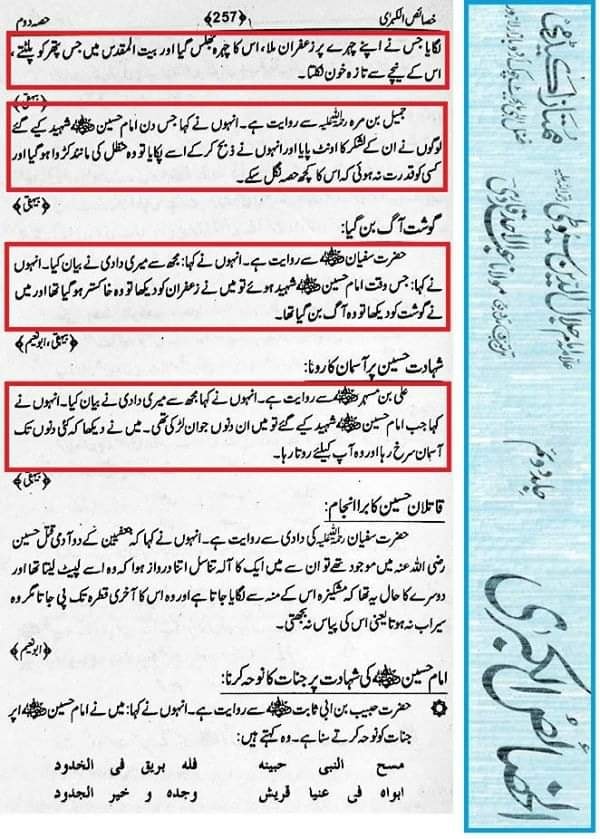 خصائص الکبرٰی
﴿257﴾
حصہ دوم
لگایا جس نے اپنے چہرے پر زعفران ملا، اس کا چہرہ جھلس گیا اور بیت المقدس میں جس پتھر کو پلٹتے،
اس کے نیچے سے تازہ خون نکلتا۔
﴿بیہقی﴾
جمیل بن مرہ رحمۃ اللہ علیہ سے روایت ہے۔ انہوں نے کہا جس دن امام حسین رضی اللہ عنہ شہید کیے گئے
لوگوں نے ان کے لشکر کا اونٹ پایا اور انہوں نے ذبح کر کے اسے پکایا تو وہ حنظل کی مانند کڑوا ہو گیا اور
کسی کو قدرت نہ ہوئی کہ اس کا کچھ حصہ نگل سکے۔
﴿بیہقی﴾
گوشت آگ بن گیا:
حضرت سفیان رضی اللہ عنہ سے روایت ہے۔ انہوں نے کہا: مجھ سے میری دادی نے بیان کیا۔ انہوں
نے کہا: جس وقت امام حسین رضی اللہ عنہ شہید ہوئے تو میں نے زعفران کو دیکھا تو وہ خاکستر ہو گیا تھا اور میں
نے گوشت کو دیکھا تو وہ آگ بن گیا تھا۔
﴿بیہقی، ابونعیم﴾
شہادت حسین پر آسمان کا رونا:
علی بن مسہر رضی اللہ عنہ سے روایت ہے۔ انہوں نے کہا مجھ سے میری دادی نے بیان کیا۔ انہوں نے
کہا جب امام حسین رضی اللہ عنہ شہید کیے گئے تو میں ان دنوں جوان لڑکی تھی۔ میں نے دیکھا کہ کئی دنوں تک
آسمان سرخ رہا اور وہ آپ کیلئے روتا رہا۔
﴿بیہقی﴾
قاتلان حسین کا برا انجام:
حضرت سفیان رحمۃ اللہ علیہ کی دادی سے روایت ہے۔ انہوں نے کہا کہ جعفیین کے دو آدمی قتل حسین
رضی اللہ عنہ میں موجود تھے تو ان سے میں ایک کا آلہ تناسل اتنا دراز ہوا کہ وہ اسے لپیٹ لیتا تھا اور
دوسرے کا حال یہ تھا کہ مشکیزہ اس کے منہ سے لگایا جاتا ہے اور وہ اس کا آخری قطرہ تک پی جاتا مگر وہ
سیراب نہ ہوتا یعنی اس کی پیاس نہ بجھتی۔
﴿ابونعیم﴾
امام حسین رضی اللہ عنہ کی شہادت پر جنات کا نوحہ کرنا:
حضرت حبیب بن ابی ثابت رضی اللہ عنہ سے روایت ہے۔ انہوں نے کہا: میں نے امام حسین رضی اللہ عنہ پر
جنات کو نوحہ کرتے سنا ہے۔ وہ کہتے ہیں:
مسح النبی جبینه فله بریق فی الخدود
ابواه فی عنیا قریش وجده و خیر الجدود
الخصائص الکبریٰ
جلد دوم
علامہ امام جلال الدین سیوطی
مولانا عبدالاحد قادری
ممتاز اکیڈمی